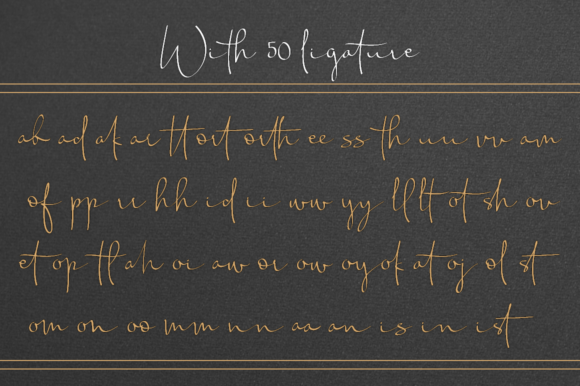 With 50 ligature
ab ad ak ar tt ort orth ee ss th uu rr am
of pp u hh id ii ww yy ll lt ot sh ov
et op tl ah oi aw or ow oy ok at oj ol st
om on oo mm nn aa an is in ist